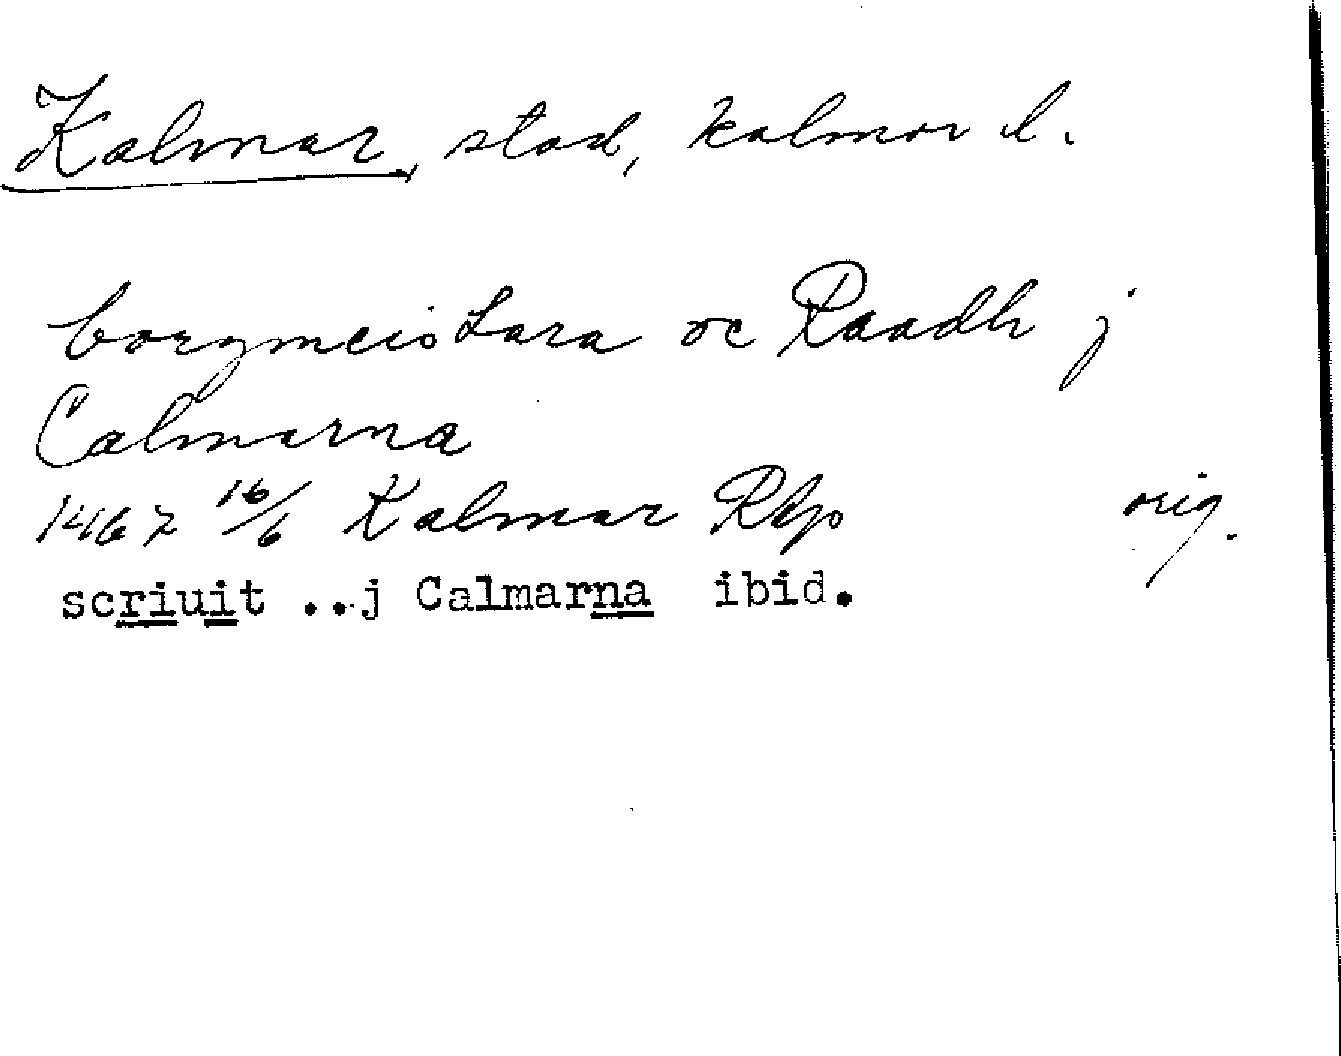 Kalmar, stad, Kalmar l.
borgmeistara oc Raadh j
Calmarna
1467 16/6 Kalmar Rkp orig.
scriuit ..j Calmarna ibid.